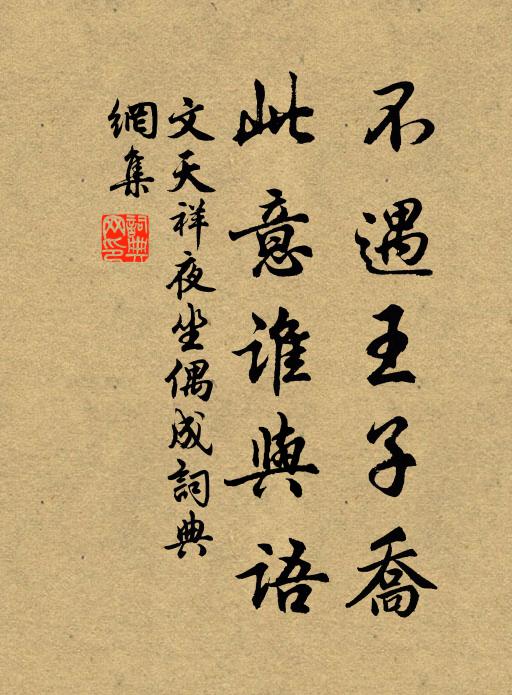 不遇王子喬
此意誰與語
文天祥夜坐偶成詞典
網集
詞典
网印